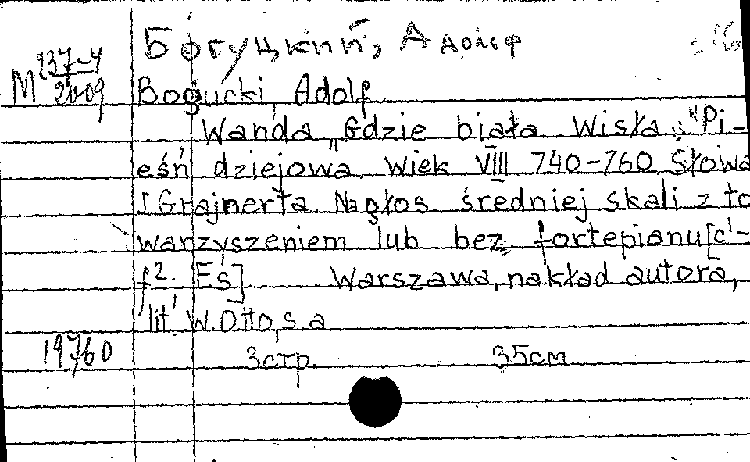 Богуцкий, Адольф
M 237-4/2009
Bogucki, Adolf
Wanda „Gdzie biała Wisła." Pi-
eśń dziejowa. Wiek VIII 740-760 Słowa
J Grajnerta. Na głos średniej skali z to
warzyszeniem lub bez fortepianu [c'-
f². Es] Warszawa, nakład autora,
lit. W. Otto, s. a
19760 3 стр. 35 см